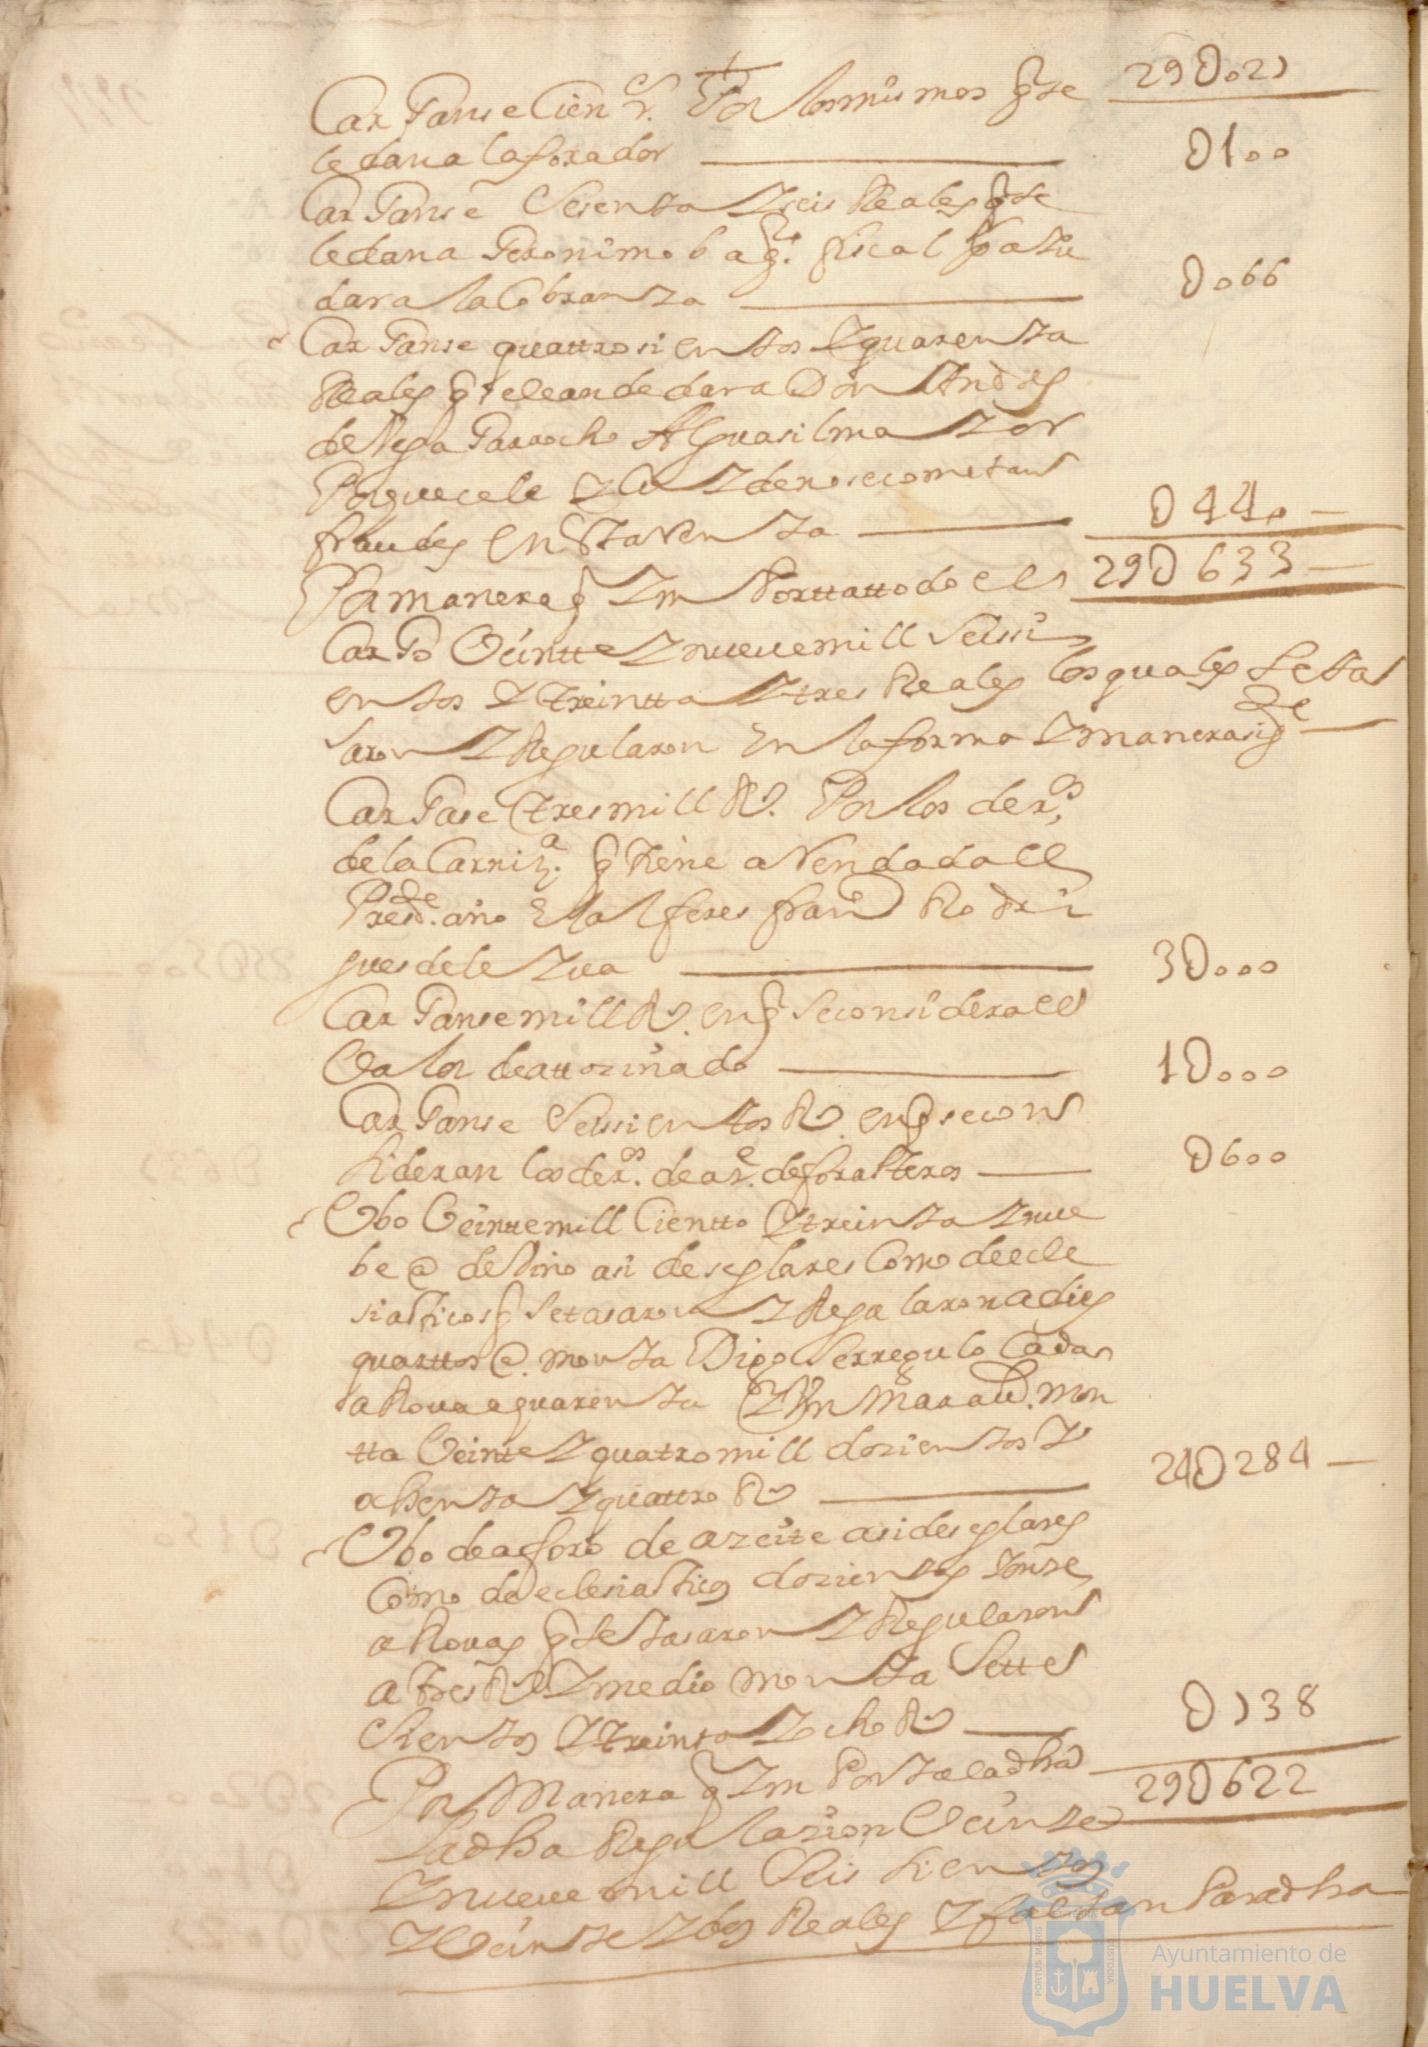 Carganse Cien r.s Por los mismos q se 29U021
le dan al aforador U100
Carganse Sesenta y seis Reales q se
le dan a Geronimo fiscal pa aiu
dar a la Cobranza U066
Carganse quattrosientos y quarenta
Reales q se le an de dar a Don Andres
de Vega Garrocho Alguasil maior
Porque cele y cuide no se cometan
fraudes en esta renta U440
Pr manera q Importta todo el 29U633
Cargo Veintte y nueve mill Seissi
entos y treintta y tres Reales los quales se ta
saron y Regularon En la forma y manera sig.te
Cargase tres mill R.s Por los der.os
de la Carniz.a q tiene a Vendada el
Pres.te año El alferes fran.co Rodri
gues de leiua 3U000
Cargansemill R.s en q se considera el
Valor de attozinado 1U000
Carganse Seissientos R.s en q se con
sideran los der.os de de forasteros U600
Ubo Veinttemill Cientto y treinta y nue
be @ de Vino asi de seglares Como de ecle
siasticos q se tasaron y Regularon a dies
quarttos @ monta Digo se rregulo Cada
aRoua a quarenta y Un Maraud. mon
tta Veinte y quatro mill dozientos y
ochenta y quattro R.s 24U284
Ubo de aforo de azeite asi de seglares
Como de eclesiasticos dozientos y onse
aRouas q se tasaron y Regularon
a tres R.s y medio monta Sette
sientos y treinta y ocho R.s U738
Pr Manera q Importa la dha 29U622
la dha Regulazion Veinte
y nueve mill Seis sientos
y Veinte y dos Reales y faltan Para dha
Ayuntamiento de
HUELVA
PORTUS MARIS
CUSTODIA